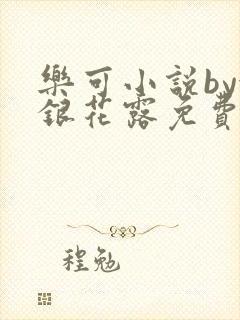 樂可小說by
銀花露免費
程勉